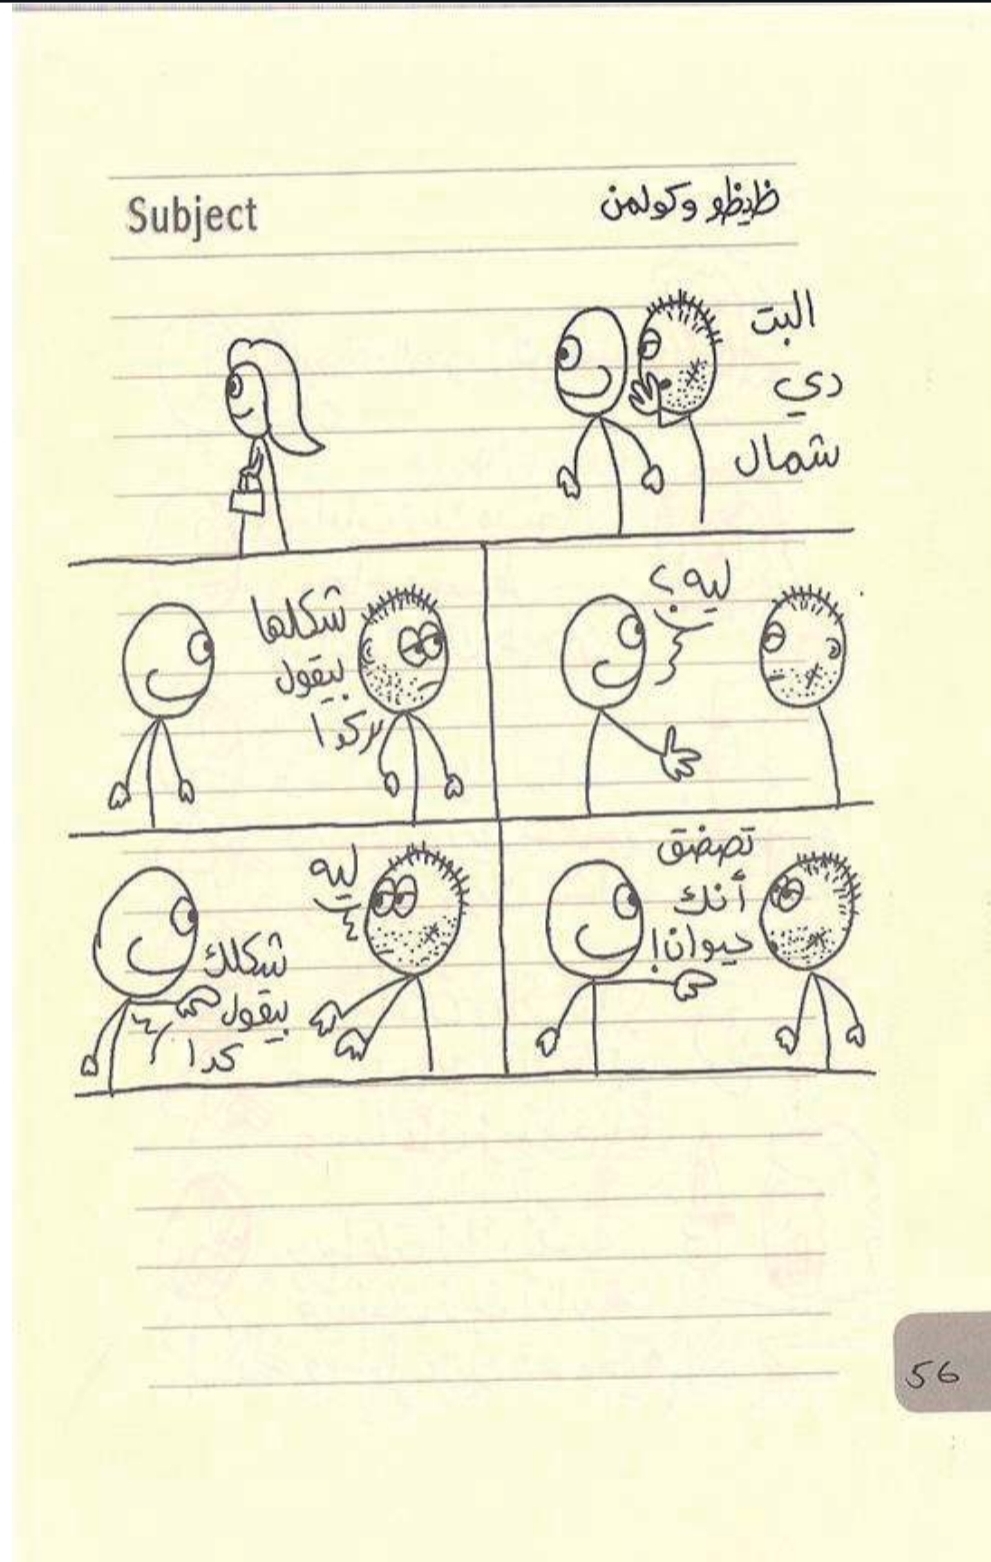 Subject
ظيظو وكولمن
البت
دي
شمال
ليه؟
شكلها
بيقول
كدا
تصضق
أنك
حيوان!
ليه
شكلك
بيقول
كدا
56